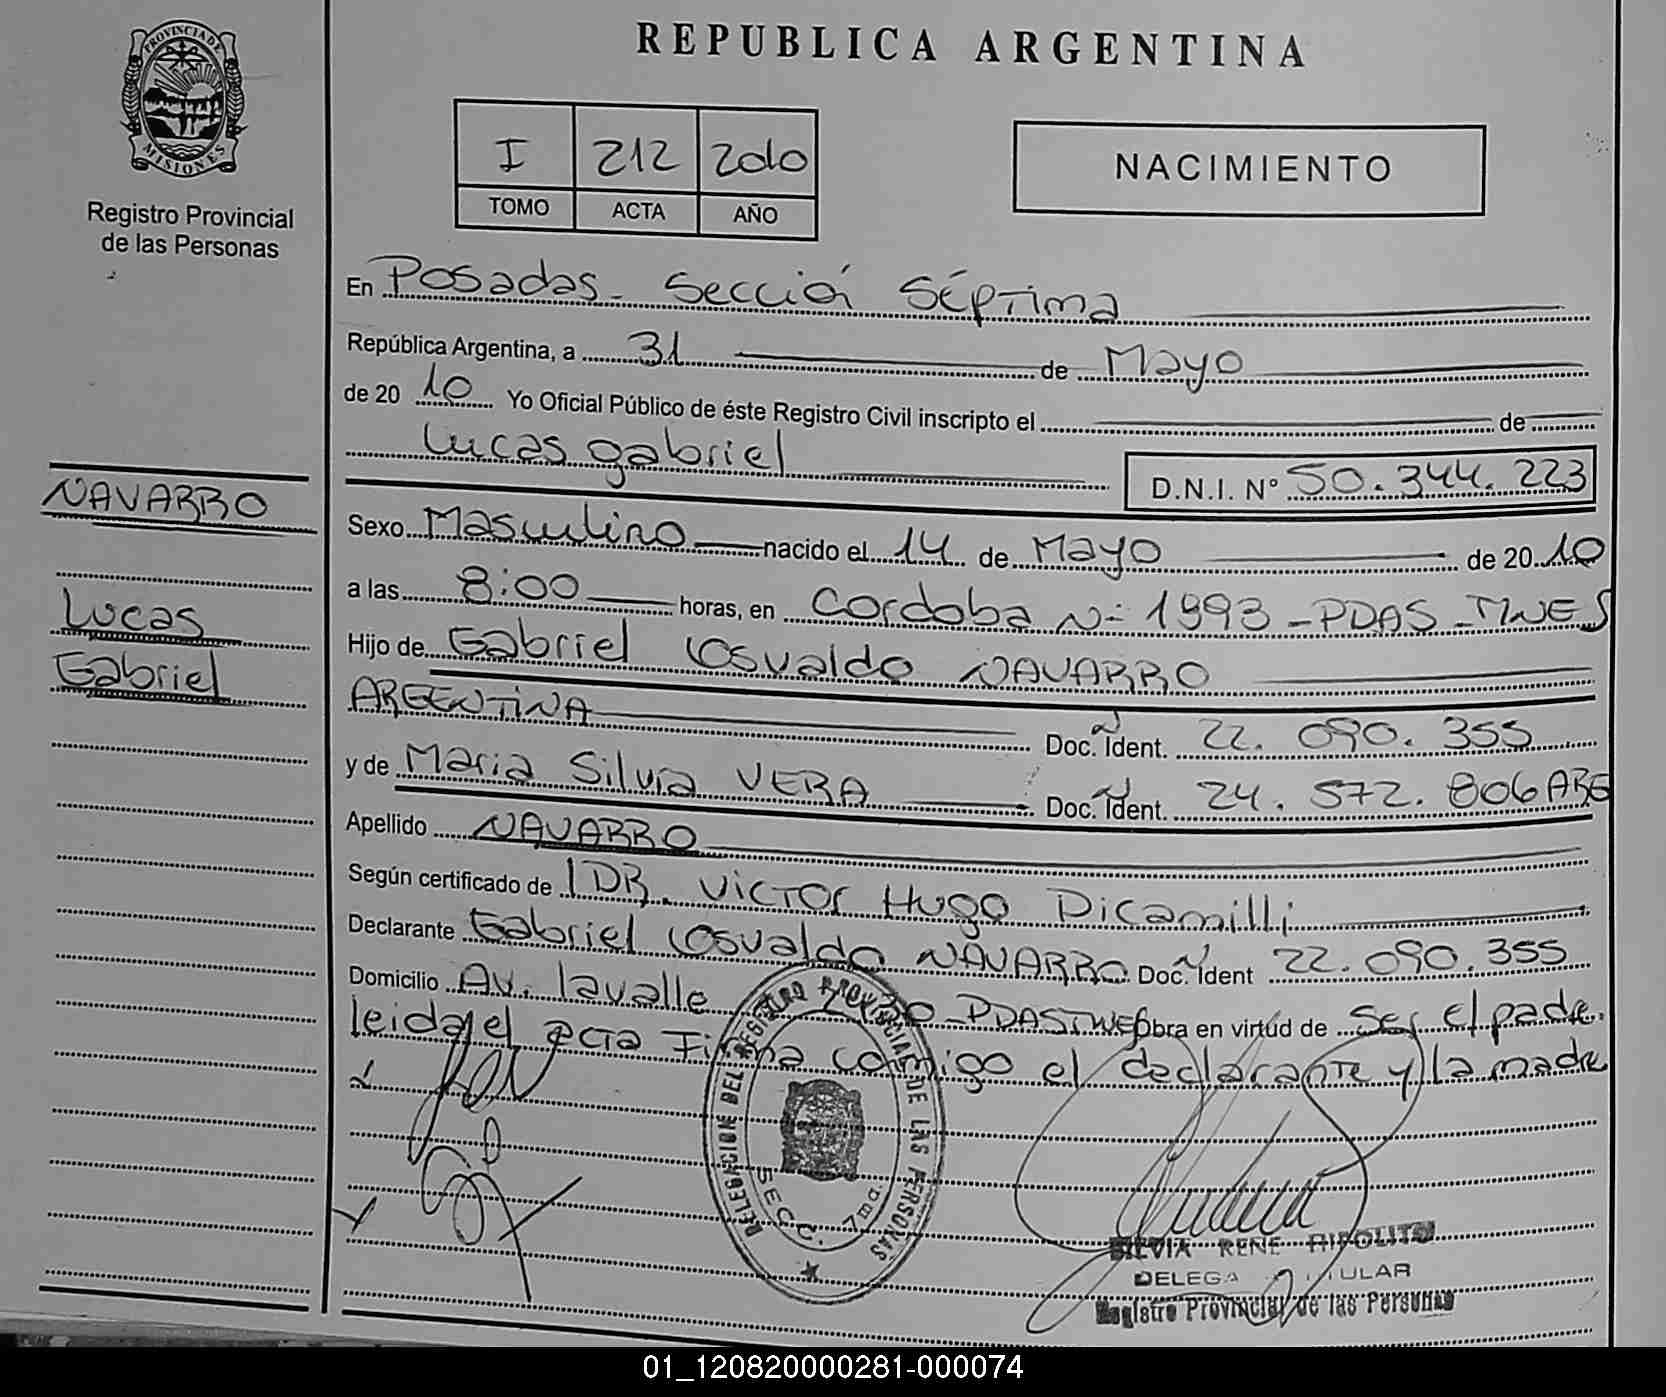 PROVINCIA DE
MISIONES
Registro Provincial
de las Personas
REPUBLICA ARGENTINA
I 212 2010
TOMO ACTA AÑO
NACIMIENTO
En Posadas - Sección Séptima
República Argentina, a 31 de Mayo
de 20 10 Yo Oficial Público de éste Registro Civil inscripto el de
Lucas gabriel D.N.I. N° 50.344.223
NAVARRO
Sexo Masculino nacido el 14 de Mayo de 20 10
a las 8:00 horas, en Cordoba N- 1993 - PDAS - MNES
Lucas
Gabriel
Hijo de Gabriel Osvaldo NAVARRO
ARGENTINA Doc. Ident. 22.090.355
y de Maria Silvia VERA Doc. Ident. 24.572.806 ARG
Apellido NAVARRO
Según certificado de DR. Victor Hugo Dicamilli
Declarante Gabriel Osvaldo NAVARRO Doc. Ident 22.090.355
Domicilio Av. lavalle PDAS Obra en virtud de Ser el padre.
leida el acta Firma conmigo el declarante y la madre
DELEGACION DEL REGISTRO PROVINCIAL DE LAS PERSONAS
SECC. 7ma.
SILVIA RENE HIPOLITO
DELEGA TULAR
Registro Provincial de las Personas
01_120820000281-000074